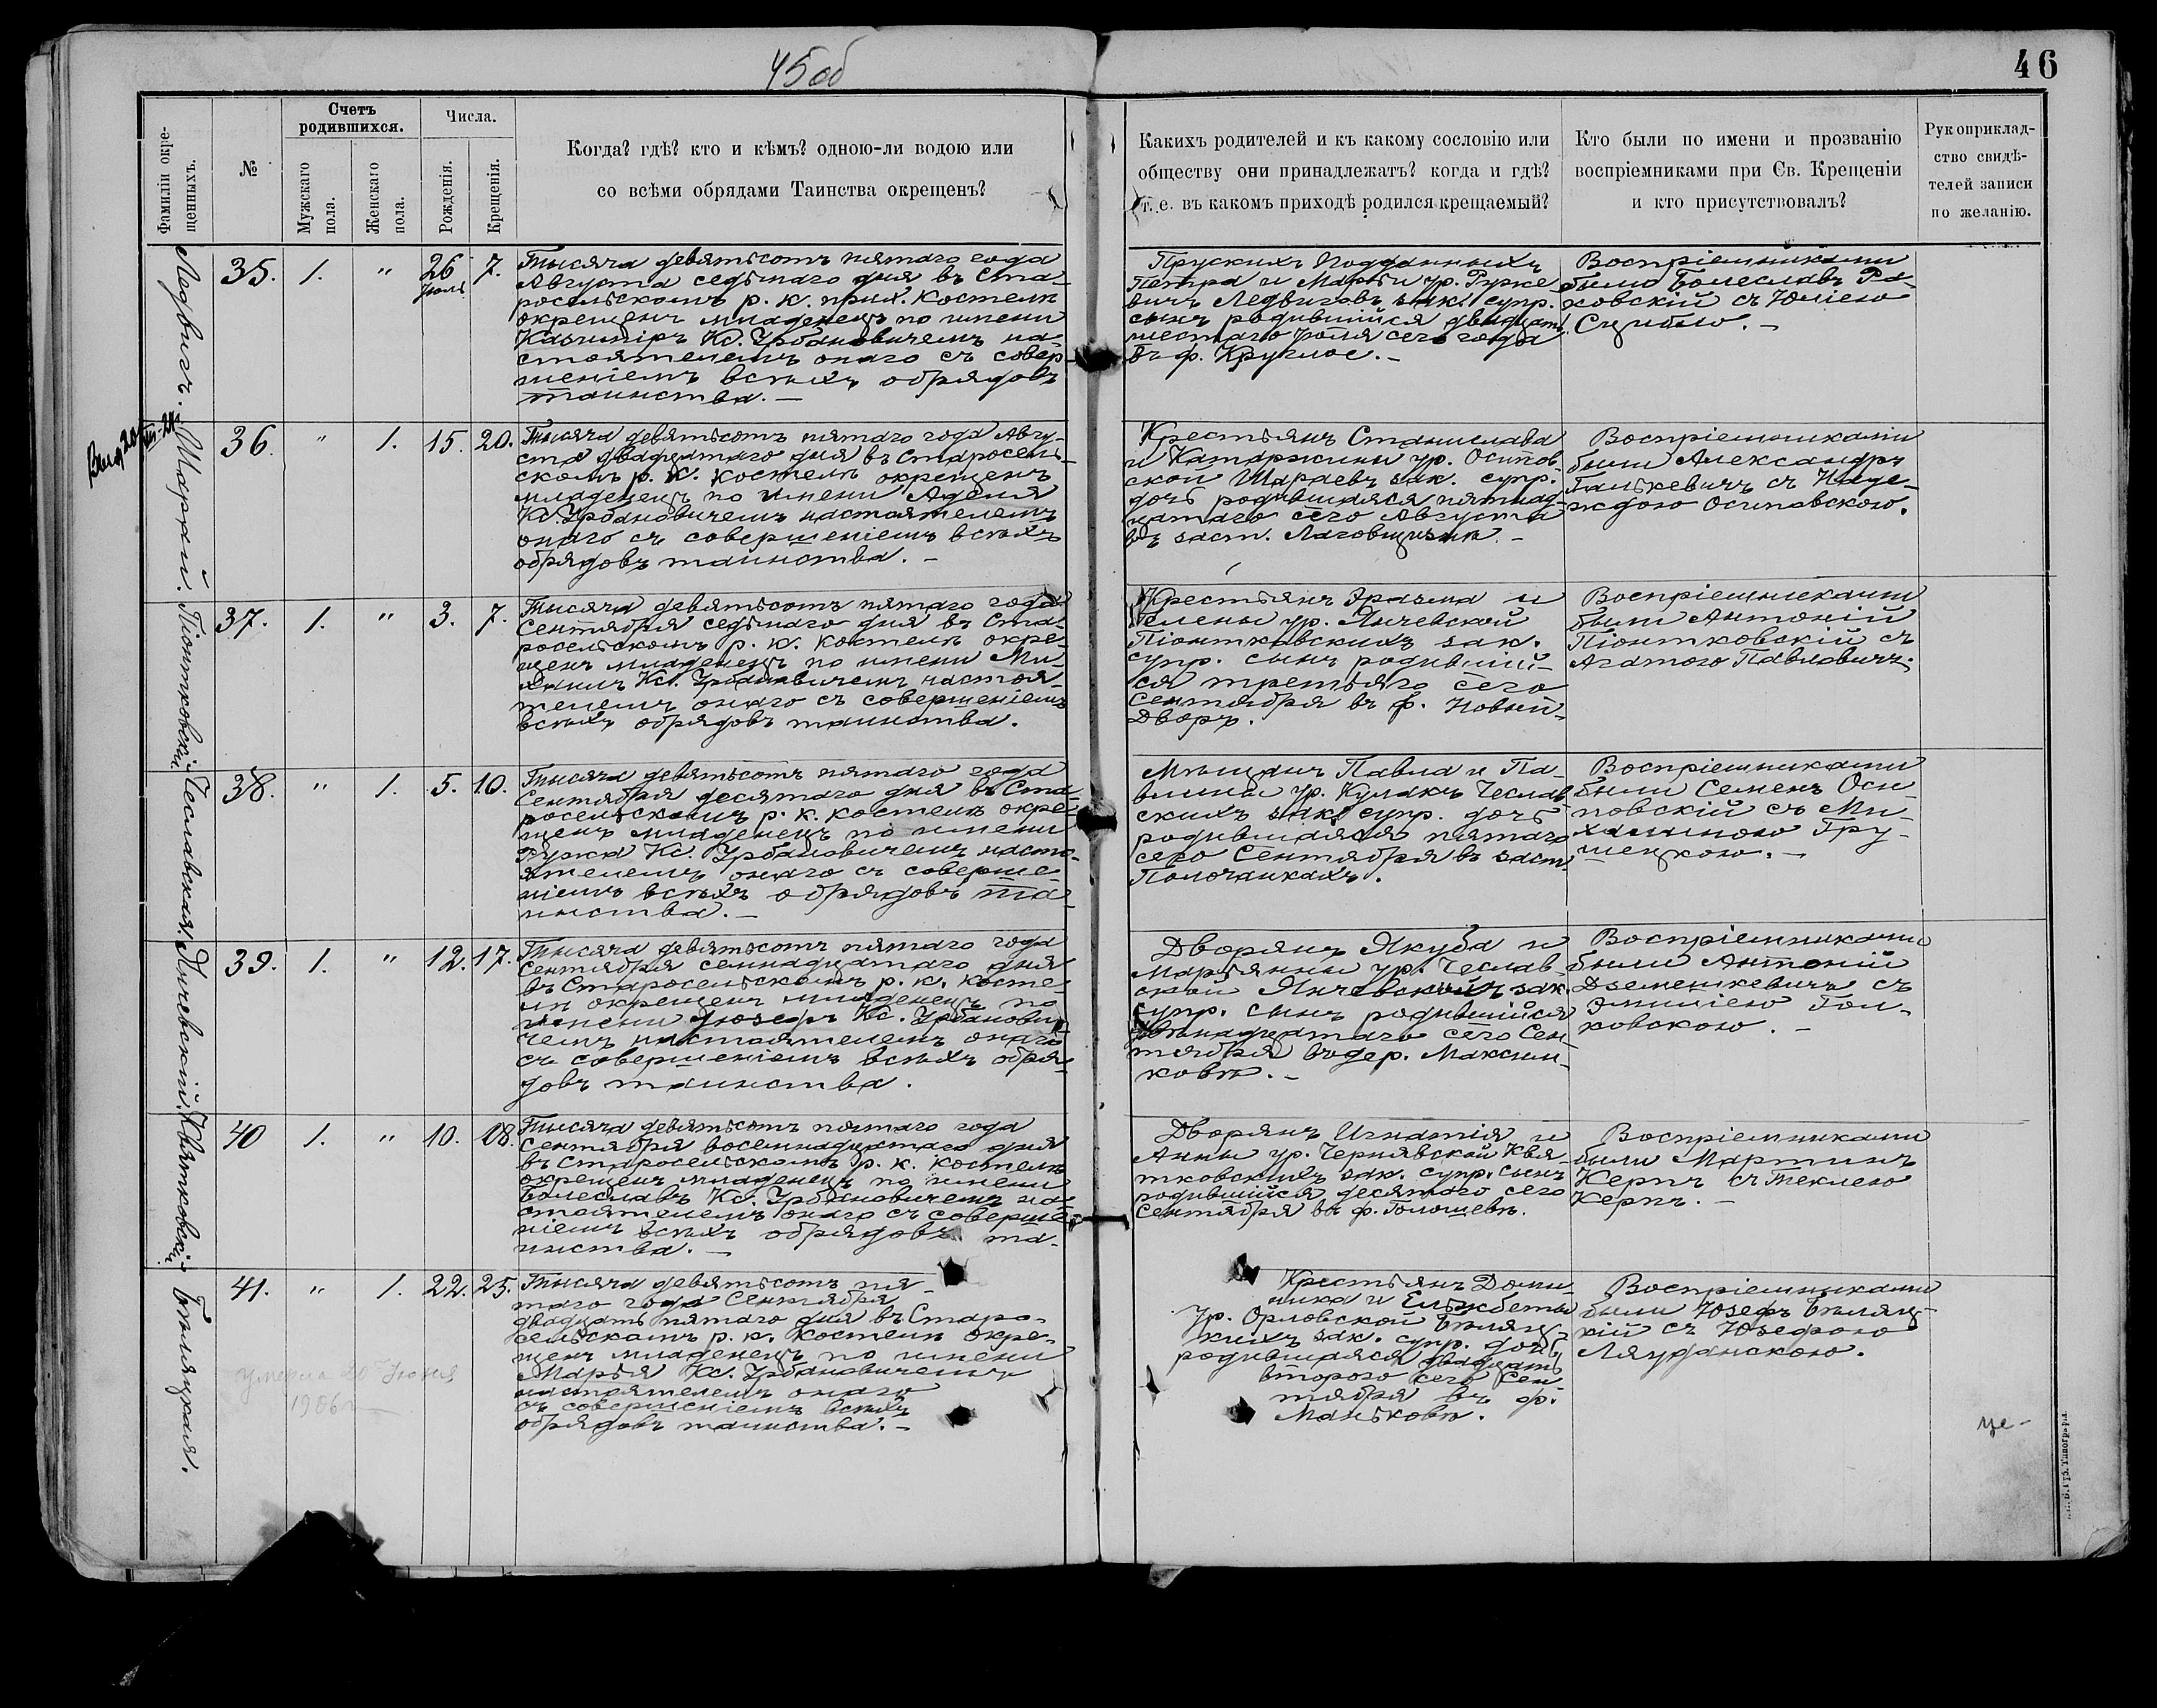 45 об
46
Фамиліи окре-
щенныхъ.
№
Счетъ
родившихся.
Мужскаго
пола.
Женскаго
пола.
Числа.
Рожденія.
Крещенія.
Когда? гдѣ? кто и кѣмъ? одною-ли водою или
со всѣми обрядами Таинства окрещенъ?
Какихъ родителей и къ какому сословію или
обществу они принадлежатъ? когда и гдѣ?
т. е. въ какомъ приходѣ родился крещаемый?
Кто были по имени и прозванію
воспріемниками при Св. Крещеніи
и кто присутствовалъ?
Рукоприклад-
ство свидѣ-
телей записи
по желанію.
Ледвигъ.
35. 1. " 26 Іюля 7.
Тысяча девятьсотъ пятаго года
Августа седьмаго дня въ Ста-
росельскомъ р. к. прих. костелѣ
окрещенъ младенецъ по имени
Казиміръ Кс. Урбановичемъ на-
стоятелемъ онаго съ совер-
шеніемъ всѣхъ обрядовъ
таинства. —
Прускихъ Подданныхъ
Петра и Марьи ур. Гурке-
вичъ Ледвиговъ зак. супр.
сынъ родившійся двадцать
шестаго Іюля сего года
въ ф. Круглое. —
Воспріемниками
были Болеславъ Ра-
ковскій съ Юліею
Сцибло. —
Шарай.
36. " 1. 15. 20.
Тысяча девятьсотъ пятаго года Авгу-
ста двадцатаго дня въ Старосель-
скомъ р. к. костелѣ окрещенъ
младенецъ по имени Аделя
Кс. Урбановичемъ настоятелемъ
онаго съ совершеніемъ всѣхъ
обрядовъ таинства. —
Крестьянъ Станислава
и Катаржины ур. Осипов-
ской Шараевъ зак. супр.
дочь родившаяся пятнад-
цатаго сего Августа
въ заст. Лаговщизнѣ. —
Воспріемниками
были Александръ
Панькевичъ съ Наде-
ждою Осиповскою.
Піонтковскій
37. 1. " 3. 7.
Тысяча девятьсотъ пятаго года
Сентября седьмаго дня въ Ста-
росельскомъ р. к. костелѣ окре-
щенъ младенецъ по имени Ми-
хаилъ Кс. Урбановичемъ настоя-
телемъ онаго съ совершеніемъ
всѣхъ обрядовъ таинства.
Крестьянъ Эразма и
Елены ур. Янчевской
Піонтковскихъ зак.
супр. сынъ родившій-
ся третьяго сего
Сентября въ ф. Новый-
Дворъ.
Воспріемниками
были Антоній
Піонтковскій съ
Агатою Павловичъ.
Чеславская.
38. " 1. 5. 10.
Тысяча девятьсотъ пятаго года
Сентября десятаго дня въ Ста-
росельскомъ р. к. костелѣ окре-
щенъ младенецъ по имени
Ружа Кс. Урбановичемъ насто-
ятелемъ онаго съ соверше-
ніемъ всѣхъ обрядовъ та-
инства. —
Мѣщанъ Павла и Па-
влины ур. Кулакъ Чеслав-
скихъ зак. супр. дочь
родившаяся пятаго
сего Сентября въ заст.
Полочанкахъ.
Воспріемниками
были Семенъ Оси-
повскій съ Ми-
халиною Гру-
шецкою. —
Янчевскій.
39. 1. " 12. 17.
Тысяча девятьсотъ пятаго года
Сентября семнадцатаго дня
въ Старосельскомъ р. к. косте-
лѣ окрещенъ младенецъ по
имени Іозефъ Кс. Урбанови-
чемъ настоятелемъ онаго
съ совершеніемъ всѣхъ обря-
довъ таинства.
Дворянъ Якуба и
Марьянны ур. Чеслав-
ской Янчевскихъ зак.
супр. сынъ родившійся
двѣнадцатаго сего Сен-
тября въ дер. Максим-
ковѣ. —
Воспріемниками
были Антоній
Дземешкевичъ съ
Эмиліею Гол-
ковскою. —
Квятковскій
40 1. " 10. 18.
Тысяча девятьсотъ пятаго года
Сентября восемнадцатаго дня
въ Старосельскомъ р. к. костелѣ
окрещенъ младенецъ по имени
Болеславъ Кс. Урбановичемъ на-
стоятелемъ онаго съ соверше-
ніемъ всѣхъ обрядовъ та-
инства. —
Дворянъ Игнатія и
Анны ур. Чернявской Квя-
тковскихъ зак. супр. сынъ
родившійся десятаго сего
Сентября въ ф. Голошевѣ.
Воспріемниками
были Мартинъ
Керпъ съ Теклею
Керпъ. —
Бѣляцкая.
41. " 1. 22. 25.
Тысяча девятьсотъ пя-
таго года Сентября
двадцать пятаго дня въ Старо-
сельскомъ р. к. костелѣ окре-
щенъ младенецъ по имени
Марья Кс. Урбановичемъ
настоятелемъ онаго
съ совершеніемъ всѣхъ
обрядовъ таинства. —
Крестьянъ Доми-
ника и Ельжбеты
ур. Орловской Бѣляц-
кихъ зак. супр. дочь
родившаяся двадцать
второго сего Сен-
тября въ ф.
Маньковѣ.
Воспріемниками
были Юзефъ Бѣляц-
кій съ Юзефою
Ляуданскою.
умерла 20 Іюня
1906 г